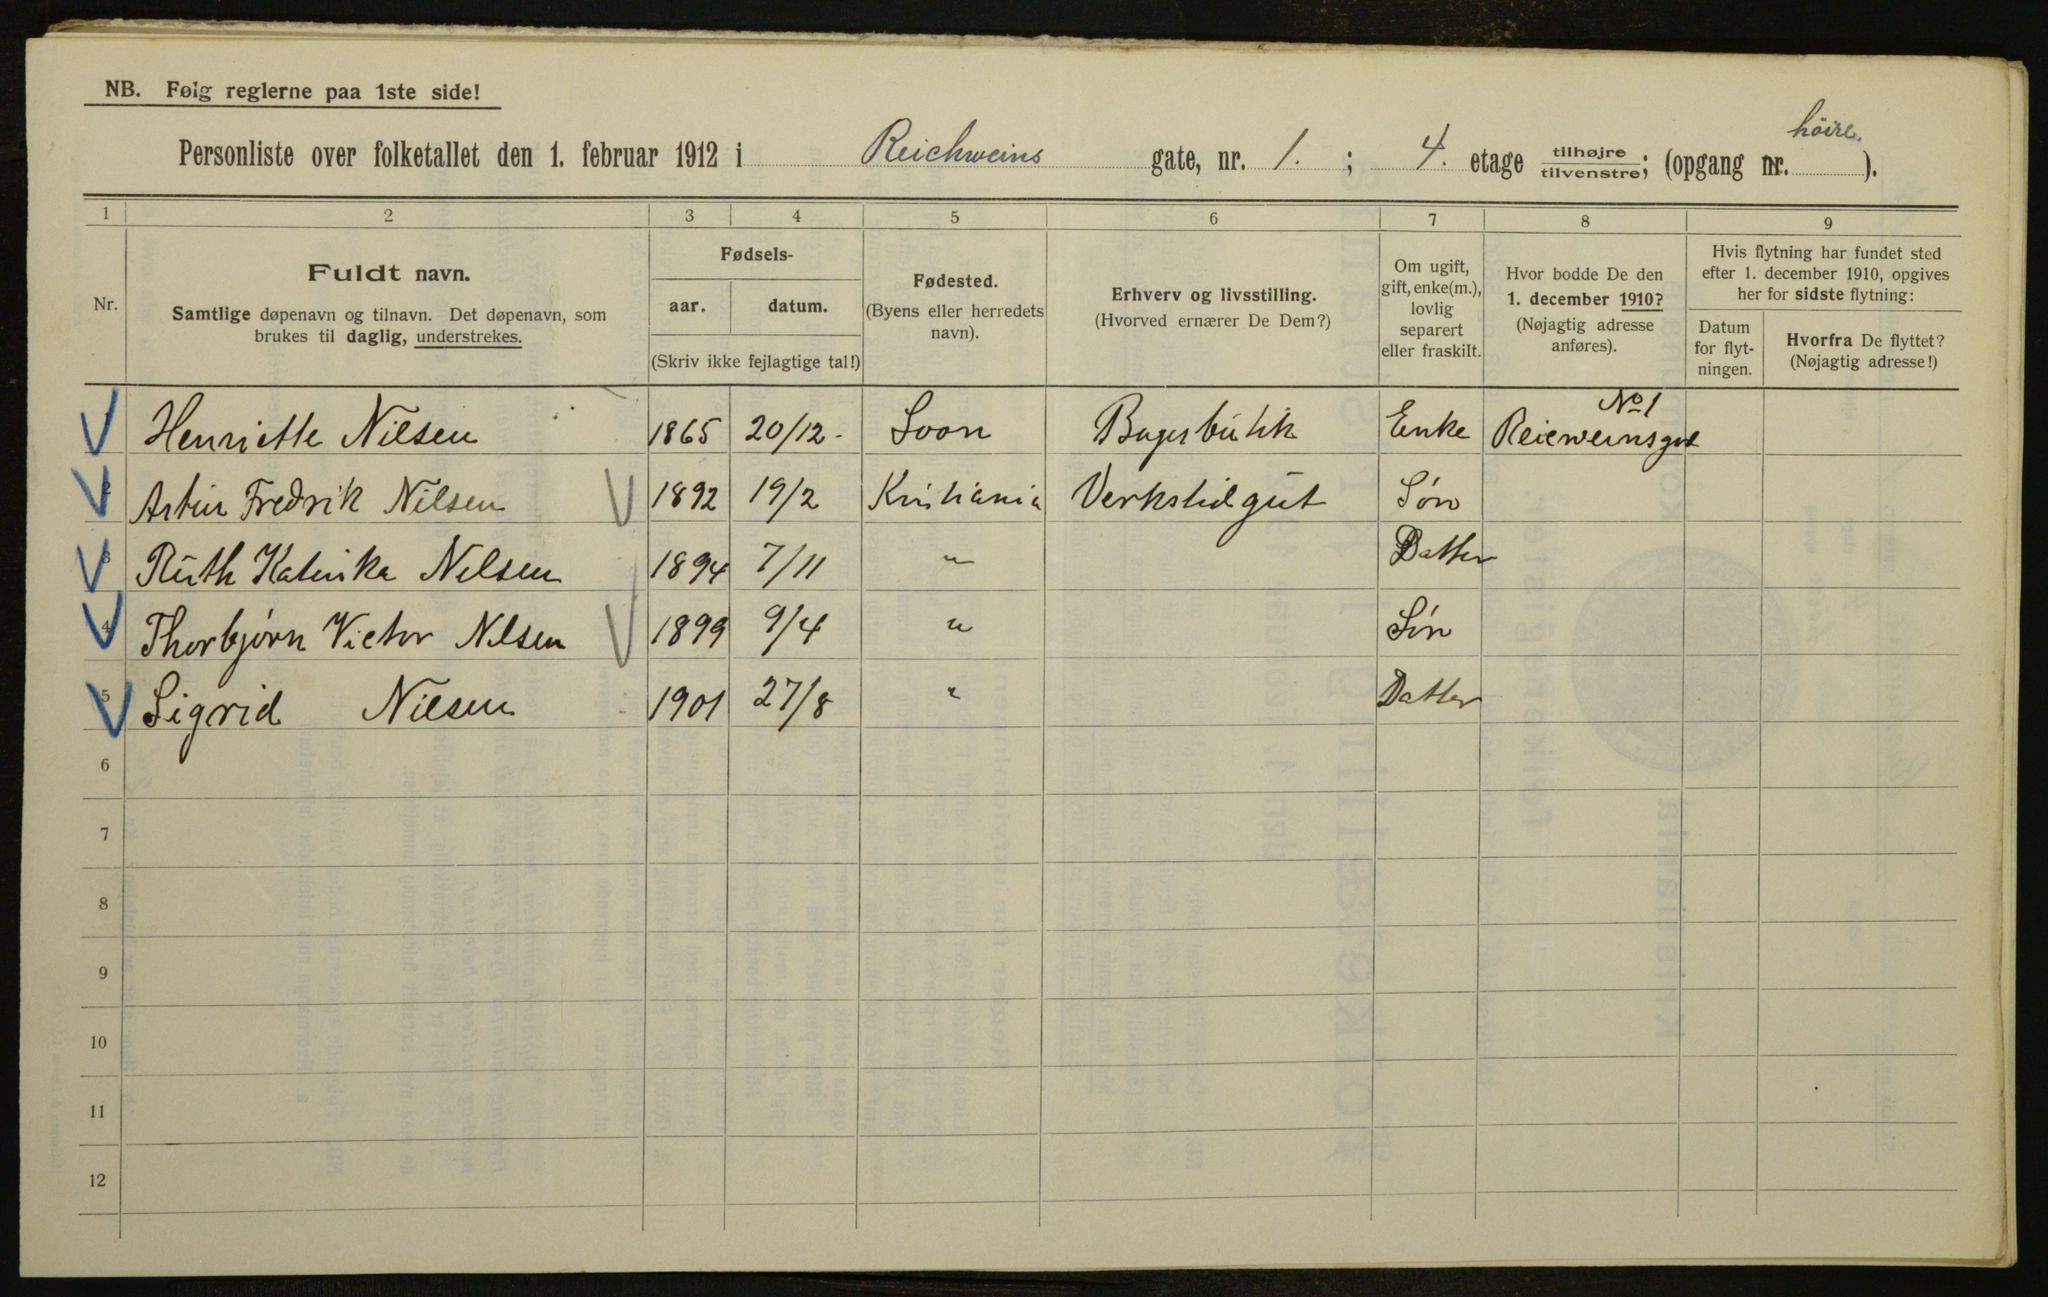 NB. Følg reglerne paa 1ste side!
høire.
Personliste over folketallet den 1. februar 1912 i Reichweins gate, nr. 1. ; 4. etage tilhøjre/tilvenstre; (opgang nr. ).
1 2 3 4 5 6 7 8 9
Nr.
Fuldt navn.
Samtlige døpenavn og tilnavn. Det døpenavn, som
brukes til daglig, understrekes.
Fødsels-
aar. datum.
(Skriv ikke fejlagtige tal!)
Fødested.
(Byens eller herredets
navn).
Erhverv og livsstilling.
(Hvorved ernærer De Dem?)
Om ugift,
gift, enke(m.),
lovlig
separert
eller fraskilt.
Hvor bodde De den
1. december 1910?
(Nøjagtig adresse
anføres).
Hvis flytning har fundet sted
efter 1. december 1910, opgives
her for sidste flytning:
Datum
for flyt-
ningen.
Hvorfra De flyttet?
(Nøjagtig adresse!)
No 1
1 Henriette Nilsen 1865 20/12- Soon Bagerbutik Enke
2 Artur Fredrik Nilsen 1892 19/2 Kristiania Verkstedgut Søn
3 Ruth Katinka Nilsen 1894 7/11 " Datter
4 Thorbjørn Victor Nilsen 1899 9/4 " Søn
5 Sigrid Nilsen 1901 27/8 " Datter
6
7
8
9
10
11
12